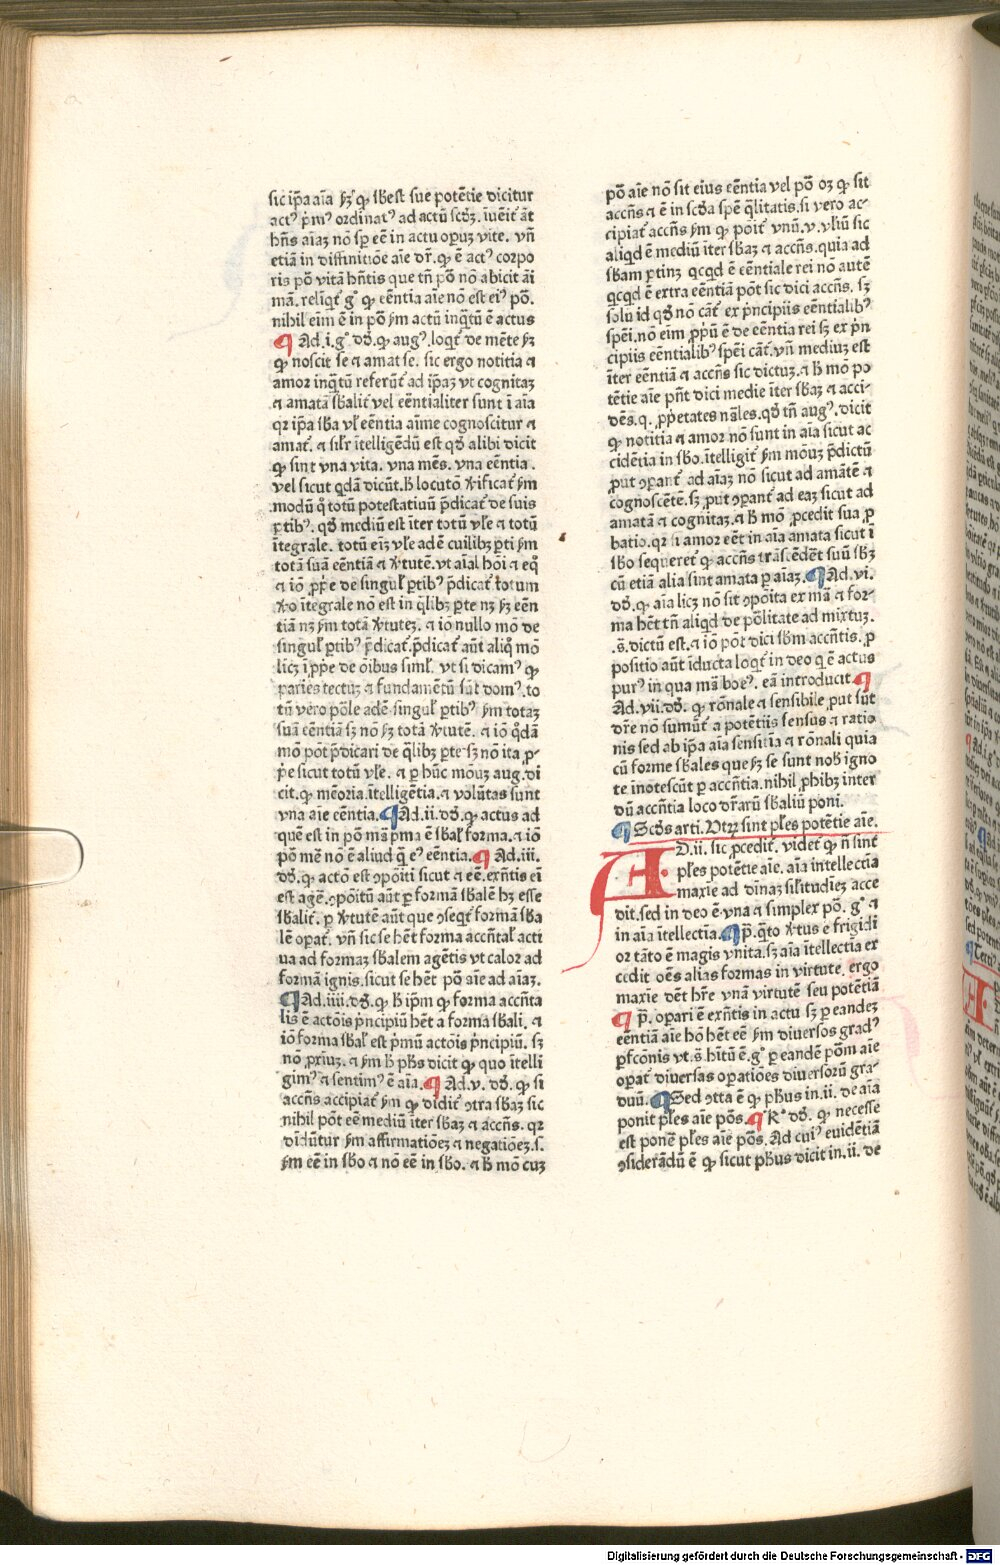 sic ip̄a aīa ẜm ꝙ sbest sue potētie dicitur
actꝰ p̄mꝰ ordinatꝰ ad actū scd̄ꝫ. īuēit᷑ āt
hn̄s aīaꝫ nō sꝑ eē in actu opuꝫ vite. vn̄
etiā in diffinitiōe aīe dr̄. ꝙ ē actꝰ corpo
ris pō vitā hn̄tis que tn̄ pō nō abicit aī
mā. relīqt᷑ gͦ ꝙ eēntia aīe nō est eiꝰ pō.
nihil eīm ē in pō ẜm actū inq̄tū ē actus
¶ Ad .i. gͦ dd̄. ꝙ augꝰ. loqt᷑ de mēte ẜm
ꝙ noscit se ⁊ amat se. sic ergo notitia ⁊
amor inq̄tū referūt᷑ ad ip̄aꝫ vt cognitaꝫ
⁊ amatā sbālit᷑ vel eēntialiter sunt ī aīa
qꝛ ip̄a sb̄a vl̄ eēntia aīme cognoscitur ⁊
amat᷑. ⁊ sil̄r ītelligēdū est qd̄ alibi dicit
ꝙ sint vna vita. vna mēs. vna eēntia.
vel sicut qdā dicūt. h̄ locutō v̄ificat᷑ ẜm
modū q̄ totū potestatiuū p̄dicat᷑ de suis
ꝑtibꝰ. qd̄ mediū est īter totū vl̄e ⁊ totū
ītegrale. totū eīꝫ vl̄e adē cuilibꝫ ꝑti ẜm
totā suā eēntiā ⁊ v̄tutē. vt aīal hōi ⁊ eq̊
⁊ iō ꝓp̄e de singul̄ ꝑtibꝰ p̄dicat᷑. totum
v̄o ītegrale nō est in qlibꝫ ꝑte nꝫ ẜm eēn
tiā nꝫ ẜm totā v̄tuteꝫ. ⁊ iō nullo mō de
singul̄ ꝑtibꝰ p̄dicat᷑. p̄dicat᷑ aūt aliq̊ mō
licꝫ īꝓp̄e de ōibus siml̄. vt si dicamꝰ ꝙ
paries tectuꝫ ⁊ fundamētū sūt domꝰ. to
tū vero pōle adē singul̄ ꝑtibꝰ ẜm totaꝫ
suā eēntiā sꝫ nō ẜm totā v̄tutē. ⁊ iō q̊dā
mō pōt p̄dicari de qlibꝫ ꝑte sꝫ nō ita ꝓ-
p̄e sicut totū vl̄e. ⁊ ꝑ hūc mōuꝫ aug. di
cit. ꝙ memōria. ītelligētia. ⁊ volūtas sunt
vna aīe eēntia. ¶ Ad .ii. dd̄. ꝙ actus ad
quē est in pō mā p̄ma ē sbal̄ forma. ⁊ iō
pō mē nō ē aliud q̄ eꝰ eēntia. ¶ Ad .iii.
dd̄. ꝙ actō est ꝯpōiti sicut ⁊ eē. exn̄tis eī
est agē. ꝯpōitū aūt ꝑ formā sbalē hꝫ esse
sbalit᷑. ꝑ v̄tutē aūt que ꝯseqt᷑ formā sba
lē opat᷑. vn̄ sic se hēt forma accn̄tal̄ acti
ua ad formaꝫ sbalem agētis vt calor ad
formā ignis. sicut se hēt pō aīe ad aīaꝫ.
¶ Ad .iiii. dd̄. ꝙ h̄ ip̄m ꝙ forma accn̄ta
lis ē actōis p̄ncipiū hēt a forma sbali. ⁊
iō forma sbal̄ est p̄mū actōis p̄ncipiū. sꝫ
nō ꝓxīuꝫ. ⁊ ẜm h̄ ph̄s dicit ꝙ quo ītelli
gimꝰ ⁊ sentimꝰ ē aīa. ¶ Ad .v. dd̄. ꝙ si
accn̄s accipiat᷑ ẜm ꝙ diuidit᷑ ꝯtra sbaꝫ sic
nihil pōt eē mediū īter sbaꝫ ⁊ accn̄s. qꝛ
diuidūtur ẜm affirmatiōeꝫ ⁊ negatiōeꝫ. s.
ẜm eē in sb̄o ⁊ nō eē in sb̄o. ⁊ h̄ mō cuꝫ
pō aīe nō sit eius eēntia vel pō oꝫ ꝙ sit
accn̄s ⁊ ē in scd̄a spē q̄litatis. si vero ac-
cipiat᷑ accn̄s ẜm ꝙ pōit᷑ vnū. v. vl̄iū sic
aliqd ē mediū īter sbaꝫ ⁊ accn̄s. quia ad
sbam ꝑtinꝫ qcqd ē eēntiale rei nō autē
qcqd ē extra eēntiā pōt sic dici accn̄s. sꝫ
solū id qd̄ nō cāt᷑ ex p̄ncipiis eēntialibꝰ
spēi. nō eīm ꝓpū ē de eēntia rei sꝫ ex p̄n
cipiis eēntialibꝰ spēi cāt᷑. vn̄ mediuꝫ est
īter eēntiā ⁊ accn̄s sic dictuꝫ. ⁊ h̄ mō po
tētie aīe pn̄t dici medie īter sbaꝫ ⁊ acci-
dēs. q. ꝓpetates nāles. qd̄ tn̄ augꝰ. dicit
ꝙ notitia ⁊ amor nō sunt in aīa sicut ac
cidētia in sb̄o. ītelligit᷑ ẜm mōuꝫ p̄dictū
ꝓut ꝯpant᷑ ad aīaꝫ nō sicut ad amātē ⁊
cognoscētē. sꝫ ꝓut ꝯpant᷑ ad eaꝫ sicut ad
amatā ⁊ cognitaꝫ. ⁊ h̄ mō ꝓcedit sua ꝓ
batio. qꝛ si amor eēt in aīa amata sicut ī
sb̄o sequeret᷑ ꝙ accn̄s trāscēdēt suū sb̄ꝫ
cū etiā alia sint amata ꝑ aīaꝫ. ¶ Ad .vi.
dd̄. ꝙ aīa licꝫ nō sit ꝯpōita ex mā ⁊ for-
ma hēt tn̄ aliqd de pōlitate ad mixtuꝫ.
.s̄. dictū est. ⁊ iō pōt dici sbm accn̄tis. ꝓ
positio aūt īducta loqt᷑ in deo q ē actus
purꝰ in qua mā boeꝰ. eā introducit ¶
Ad .vii. dd̄. ꝙ rōnale ⁊ sensibile ꝓut sūt
dr̄e nō sumūt᷑ a potētiis sensus ⁊ ratio
nis sed ab ip̄a aīa sensitīa ⁊ rōnali quia
cū forme sbales que ẜm se sunt nob̄ igno
te īnotescūt ꝑ accn̄tia. nihil ꝓhibꝫ inter
dū accn̄tia loco dr̄arū sbaliū poni.
¶ Scd̄s arti. Vtꝝ sint pl̄es potētie aīe.
AD .ii. sic ꝓcedit᷑. videt᷑ ꝙ n̄ sint
pl̄es potētie aīe. aīa intellectīa
maxīe ad diuinaꝫ sil̄itudīeꝫ acce
dit. sed in deo ē vna ⁊ simplex pō. gͦ ⁊
in aīa ītellectīa. ¶ p̄. q̄to v̄tus ē frigidi
or tāto ē magis vnita. sꝫ aīa ītellectīa ex
cedit oēs alias formas in virtute. ergo
maxīe dēt hr̄e vnā virtutē seu potētiā
¶ p̄. opari ē exn̄tis in actu sꝫ ꝑ eandeꝫ
eēntiā aīe hō hēt eē ẜm diuersos gradꝰ
ꝑfcōnis vt .s̄. hītū ē. gͦ ꝑ eandē pōm aīe
opat᷑ diuersas opatiōes diuersorū gra-
duū. ¶ Sed ꝯtra ē ꝙ ph̄us in .ii. de aīa
ponit pl̄es aīe pōs. ¶ Rͦ dd̄. ꝙ necesse
est ponē pl̄es aīe pōs. Ad cuiꝰ euidētiā
ꝯsiderādū ē ꝙ sicut ph̄us dicit in .ii. de
Digitalisierung gefördert durch die Deutsche Forschungsgemeinschaft - DFG